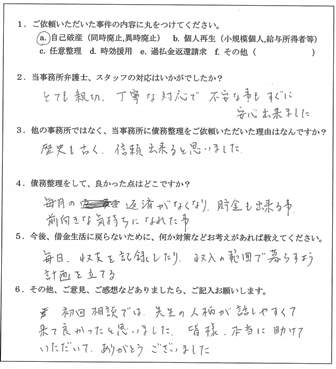 1. ご依頼いただいた事件の内容に丸をつけてください。
a. 自己破産(同時廃止,異時廃止) b. 個人再生(小規模個人,給与所得者等)
c. 任意整理 d. 時効援用 e. 過払金返還請求 f. その他( )
2. 当事務所弁護士、スタッフの対応はいかがでしたか?
とても親切、丁寧な対応で 不安な事もすぐに
安心出来ました
3. 他の事務所ではなく、当事務所に債務整理をご依頼いただいた理由はなんですか?
歴史も古く、信頼出来ると思いました
4. 債務整理をして、良かった点はどこですか?
毎月の 返済がなくなり、貯金も出来る事
前向きな気持ちになれた事
5. 今後、借金生活に戻らないために、何か対策などお考えがあれば教えてください。
毎日、収支を記録したり、収入の範囲で暮らすよう
計画を立てる
6. その他、ご意見、ご感想などありましたら、ご記入お願いします。
初回相談では、先生の人柄が話しやすくて
来て良かったと思いました 皆様、本当に助けて
いただいて、ありがとうございました